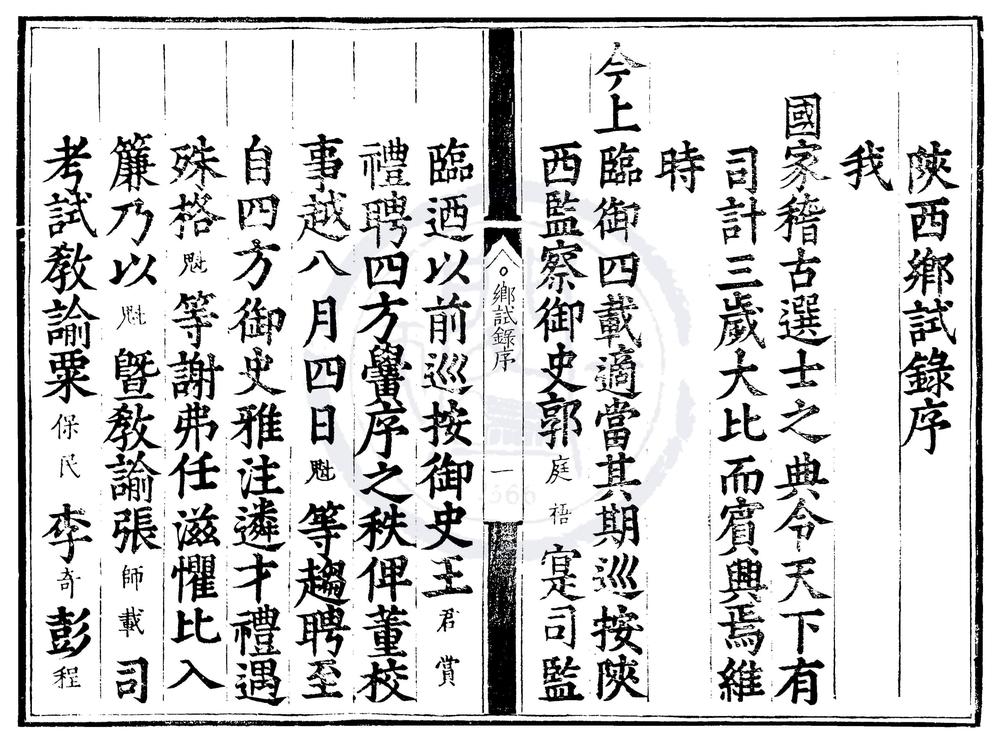 陝西鄉試錄序
我
國家稽古選士之典令天下有
司計三歲大比而賓興焉維
時
今上臨御四載適當其期巡按陝
西監察御史郭庭梧寔司監
鄉試錄序
一
臨迺以前巡按御史王君賞
禮聘四方黌序之秩俾董校
事越八月四日魁等趨聘至
自四方御史雅注遴才禮遇
殊格魁等謝弗任滋懼比入
簾乃以魁暨教諭張師載司
考試教諭粟保民李奇彭程